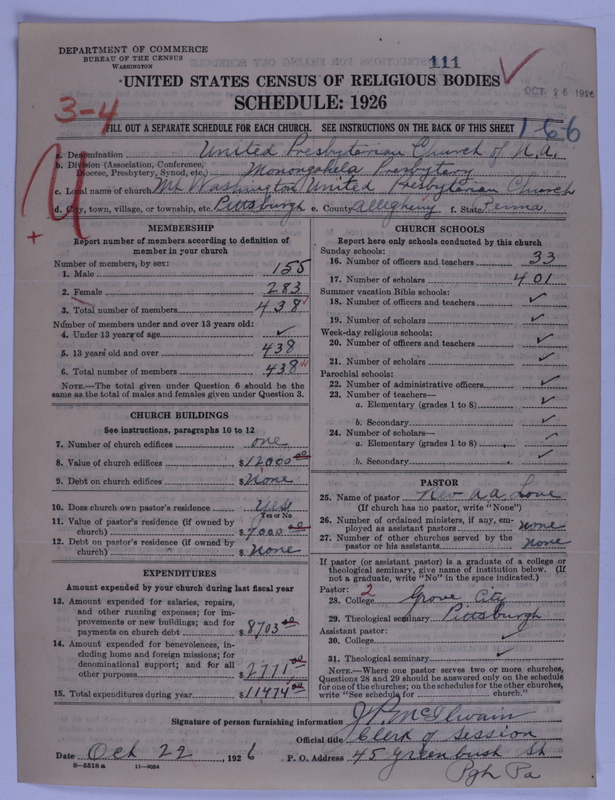 DEPARTMENT OF COMMERCE
BUREAU OF THE CENSUS
WASHINGTON
111
UNITED STATES CENSUS OF RELIGIOUS BODIES
OCT 26 1926
SCHEDULE: 1926
3-4
FILL OUT A SEPARATE SCHEDULE FOR EACH CHURCH. SEE INSTRUCTIONS ON THE BACK OF THIS SHEET
166
a. Denomination United Presbyterian Church of N.A.
b. Division (Association, Conference, Diocese, Presbytery, Synod, etc.) Monongahela Presbytery
c. Local name of church Mt Washington United Presbyterian Church
d. City, town, village, or township, etc. Pittsburgh e. County Allegheny f. State Penna
MEMBERSHIP
Report number of members according to definition of
member in your church
Number of members, by sex:
1. Male 155
2. Female 283
3. Total number of members 438
Number of members under and over 13 years old:
4. Under 13 years of age ✓
5. 13 years old and over 438
6. Total number of members 438
NOTE.—The total given under Question 6 should be the
same as the total of males and females given under Question 3.
CHURCH BUILDINGS
See instructions, paragraphs 10 to 12
7. Number of church edifices one
8. Value of church edifices $12000 00
9. Debt on church edifices $None
10. Does church own pastor's residence Yes
Yes or No
11. Value of pastor's residence (if owned by
church) $7000 00
12. Debt on pastor's residence (if owned by
church) $None
EXPENDITURES
Amount expended by your church during last fiscal year
13. Amount expended for salaries, repairs,
and other running expenses; for im-
provements or new buildings; and for
payments on church debt $8703 00
14. Amount expended for benevolences, in-
cluding home and foreign missions; for
denominational support; and for all
other purposes $2771 00
15. Total expenditures during year $11474 00
CHURCH SCHOOLS
Report here only schools conducted by this church
Sunday schools:
16. Number of officers and teachers 33
17. Number of scholars 401
Summer vacation Bible schools:
18. Number of officers and teachers ✓
19. Number of scholars ✓
Week-day religious schools:
20. Number of officers and teachers ✓
21. Number of scholars ✓
Parochial schools:
22. Number of administrative officers ✓
23. Number of teachers—
a. Elementary (grades 1 to 8) ✓
b. Secondary ✓
24. Number of scholars—
a. Elementary (grades 1 to 8) ✓
b. Secondary ✓
PASTOR
25. Name of pastor Rev A A Love
(If church has no pastor, write "None")
26. Number of ordained ministers, if any, em-
ployed as assistant pastors none
27. Number of other churches served by the
pastor or his assistants none
If pastor (or assistant pastor) is a graduate of a college or
theological seminary, give name of institution below. (If
not a graduate, write "No" in the space indicated.)
Pastor: 2
28. College Grove City
29. Theological seminary Pittsburgh
Assistant pastor:
30. College ✓
31. Theological seminary ✓
NOTE.—Where one pastor serves two or more churches,
Questions 28 and 29 should be answered only on the schedule
for one of the churches; on the schedules for the other churches,
write "See schedule for church."
Signature of person furnishing information J P McIlwain
Official title Clerk of Session
Date Oct 22, 1926 P. O. Address 45 Greenbush St
8—5518 a 11—9054
Pgh Pa